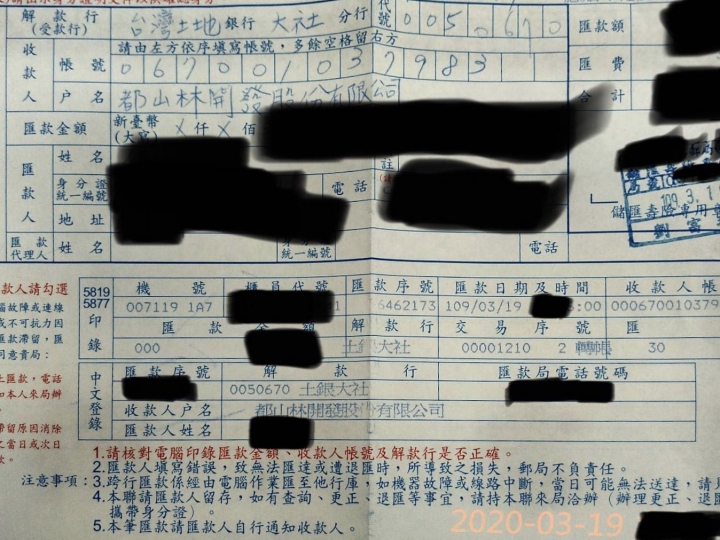 解款行
(受款行)
台灣土地 銀行 大社 分行 代號 005 0670
匯款金額
請由左方依序填寫帳號，多餘空格留右方
收款人 帳號 067001037983
匯費
戶名 都山林開發股份有限公司
合計
匯款金額 新臺幣(大寫) X仟X佰
匯款人 姓名
身分證
統一編號
電話
註
地址
109.3.1
儲匯壽險專用章
劉富
匯款代理人 姓名
統一編號
電話
款人請勾選
5819
5877
印錄
機號 櫃員代號 匯款序號 匯款日期及時間 收款人帳
007119 1A7 1 6462173 109/03/19 :00 000670010379
匯款金額 解款行 交易序號 匯
000 土銀大社 00001210 2 轉帳 30
腦故障或連線
或不可抗力因
款滯留，匯
同意貴局：
中文登錄
匯款序號 解款行 匯款局電話號碼
0050670 土銀大社
收款人戶名 都山林開發股份有限公司
匯款人姓名
上匯款，電話
如本人來局辦
帶留原因消除
之當日或次日
款。
1.請核對電腦印錄匯款金額、收款人帳號及解款行是否正確。
注意事項：
2.匯款人填寫錯誤，致無法匯達或遭退匯時，所導致之損失，郵局不負責任。
3.跨行匯款係經由電腦作業匯至他行庫，如機器故障或線路中斷，當日可能無法送達，請見
4.本聯請匯款人留存，如有查詢、更正、退匯等事宜，請持本聯來局洽辦（辦理更正、退匯
攜帶身分證）。
5.本筆匯款請匯款人自行通知收款人。
2020-03-19